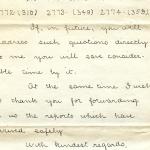 772 (318) 2773 (349) 2774 (353
If, in future, you will
address such questions directly
to me you will save consider-
able time by it.
At the same time I wish
to thank you for forwarding
to us the reports which have
arrived safely
With kindest regards,